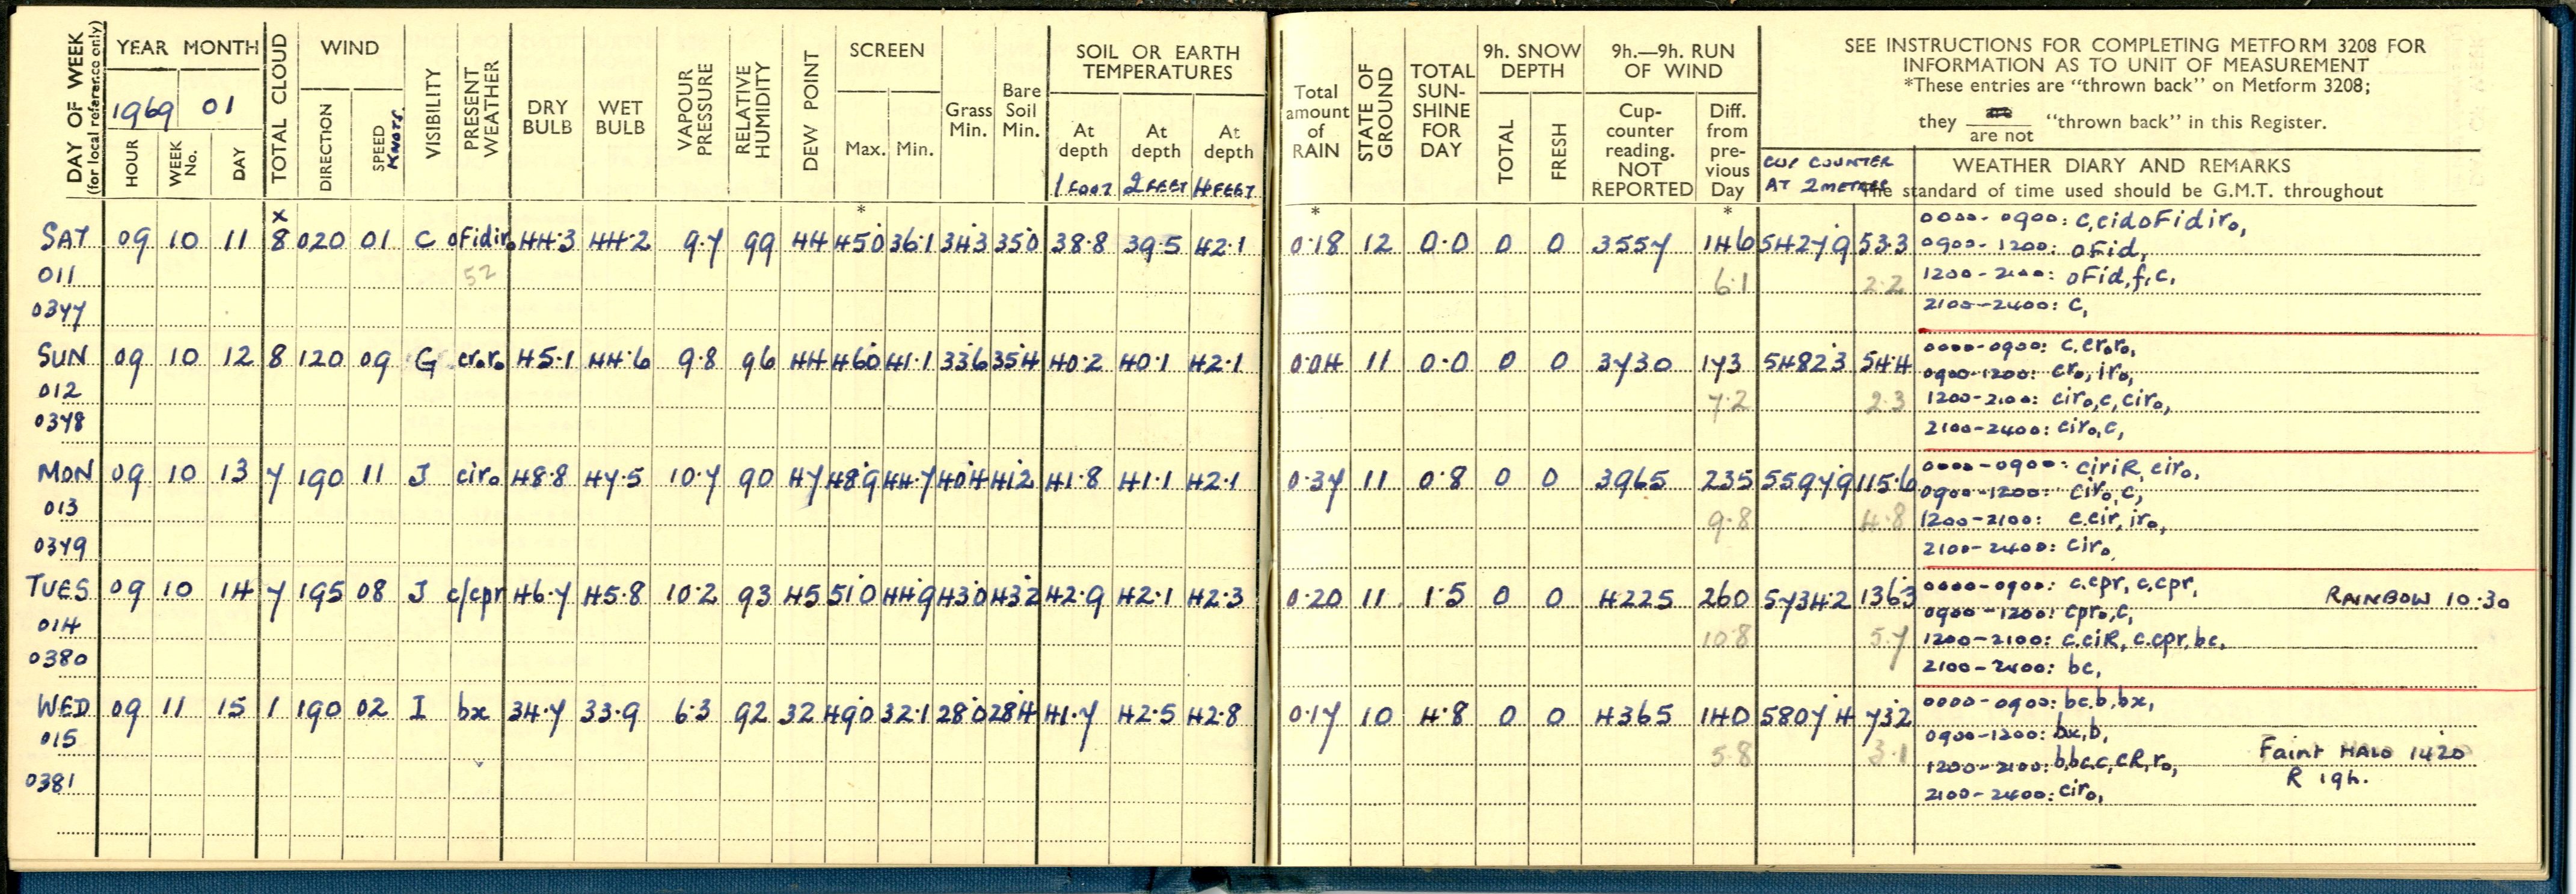 DAY OF WEEK
(for local reference only)
YEAR MONTH
1969 01
HOUR
WEEK No.
DAY
TOTAL CLOUD
WIND
DIRECTION
SPEED
KNOTS.
VISIBILITY
PRESENT WEATHER
DRY BULB
WET BULB
VAPOUR PRESSURE
RELATIVE HUMIDITY
DEW POINT
SCREEN
Max. Min.
Grass Min.
Bare Soil Min.
SOIL OR EARTH TEMPERATURES
At depth At depth At depth
1 FOOT 2 FEET 4 FEET
Total amount of RAIN
STATE OF GROUND
TOTAL SUN-SHINE FOR DAY
9h. SNOW DEPTH
TOTAL
FRESH
9h.—9h. RUN OF WIND
Cup-counter reading. NOT REPORTED
Diff. from pre-vious Day
SEE INSTRUCTIONS FOR COMPLETING METFORM 3208 FOR
INFORMATION AS TO UNIT OF MEASUREMENT
*These entries are "thrown back" on Metform 3208;
they are / are not "thrown back" in this Register.
CUP COUNTER
AT 2 METRES
WEATHER DIARY AND REMARKS
The standard of time used should be G.M.T. throughout
x * * *
SAT 09 10 11 8 020 01 C oFidir₀ 44·3 44·2 9·7 99 44 45·0 36·1 34·3 35·0 38·8 39·5 42·1 0·18 12 0·0 0 0 3557 146 5427·9 53·3
011 52 6·1 2·2
0377
0000-0900: c,cidoFidir₀,
0900-1200: oFid,
1200-2100: oFid,f,c,
2100-2400: c,
SUN 09 10 12 8 120 09 G cr₀r₀ 45·1 44·6 9·8 96 44 46·0 41·1 33·6 35·4 40·2 40·1 42·1 0·04 11 0·0 0 0 3730 173 5482·3 54·4
012 7·2 2·3
0378
0000-0900: c.cr₀r₀,
0900-1200: cr₀, ir₀,
1200-2100: cir₀,c,cir₀,
2100-2400: cir₀,c,
MON 09 10 13 7 190 11 J cir₀ 48·8 47·5 10·7 90 47 48·9 44·7 40·4 41·2 41·8 41·1 42·1 0·37 11 0·8 0 0 3965 235 5597·9 115·6
013 9·8 4·8
0379
0000-0900: ciriR, cir₀,
0900-1200: cir₀,c,
1200-2100: c.cir, ir₀,
2100-2400: cir₀,
TUES 09 10 14 7 195 08 J c/cpr 46·7 45·8 10·2 93 45 51·0 44·9 43·0 43·2 42·9 42·1 42·3 0·20 11 1·5 0 0 4225 260 5734·2 136·3
014 10·8 5·7
0380
0000-0900: c.cpr, c.cpr, RAINBOW 10·30
0900-1200: cpr₀,c,
1200-2100: c.ciR, c.cpr,bc,
2100-2400: bc,
WED 09 11 15 1 190 02 I bx 34·7 33·9 6·3 92 32 49·0 32·1 28·0 28·4 41·7 42·5 42·8 0·17 10 4·8 0 0 4365 140 5807·4 73·2
015 5·8 3·1
0381
0000-0900: bc.b,bx,
0900-1200: bx,b,
1200-2100: b,bc.c,cR,r₀, Faint HALO 1420
R 19h.
2100-2400: cir₀,